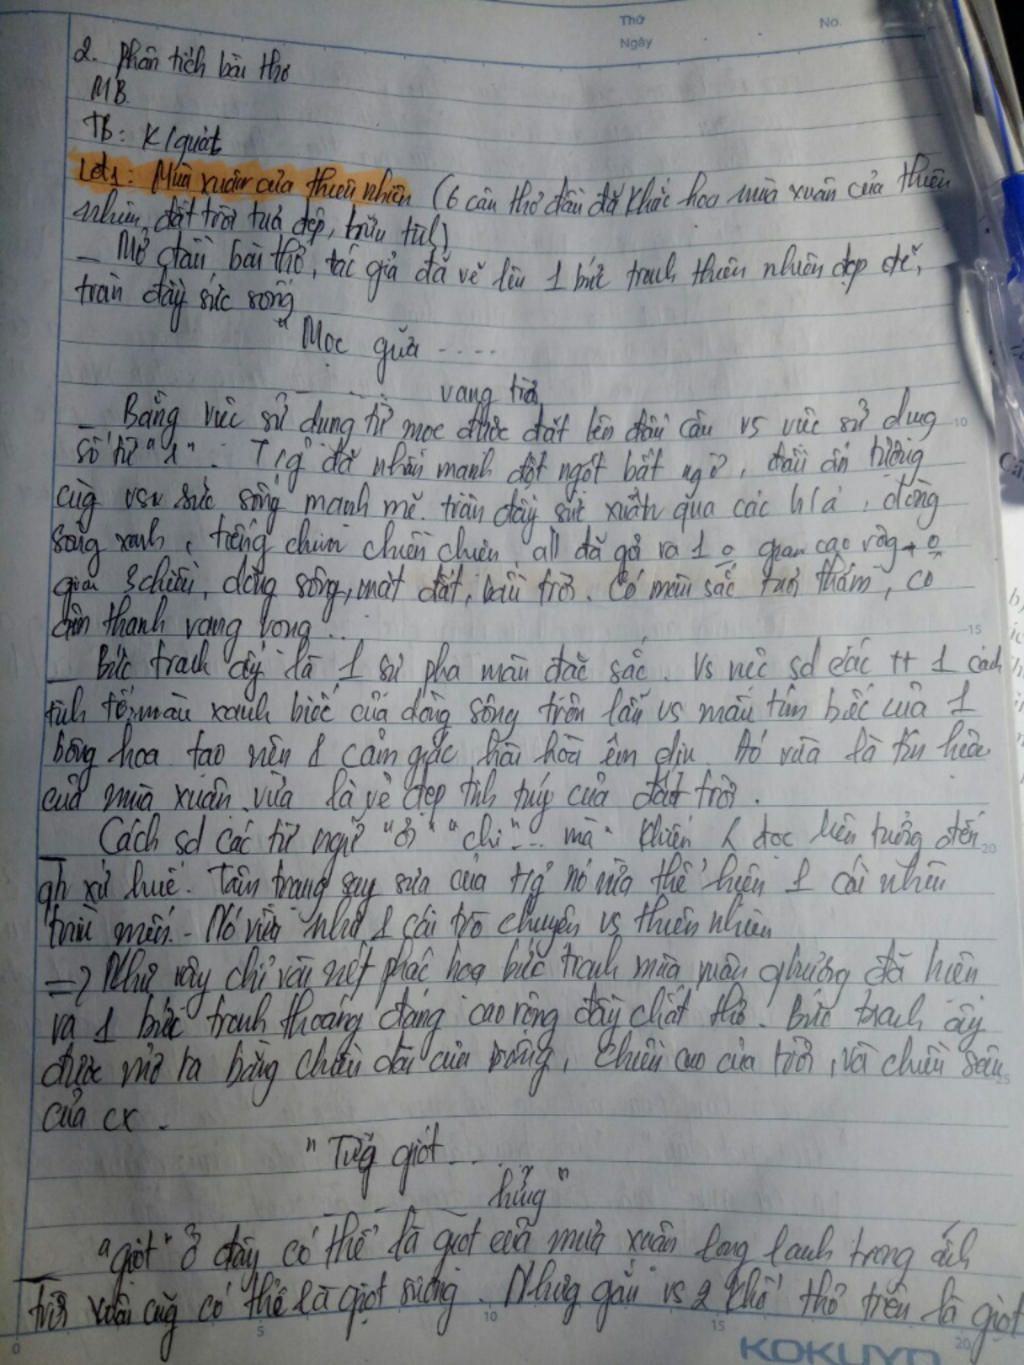 Thứ No.
Ngày
2. Phân tích bài thơ
MB
TB: K/quát
Lđ1: Mùa xuân của thiên nhiên (6 câu thơ đầu đã khắc hoạ mùa xuân của thiên
nhiên, đất trời tươi đẹp, trữu tình)
_ Mở đầu bài thơ, tác giả đã vẽ lên 1 bức tranh thiên nhiên đẹp đẽ,
tràn đầy sức sống
"Mọc giữa ....
vang trời
_ Bằng việc sử dụng từ mọc được đặt lên đầu câu vs việc sử dụng
số từ "1". T/g đã nhấn mạnh đột ngột bất ngờ, đầy ấn tượng
cùg vs sức sống mạnh mẽ. tràn đầy sức xuân qua các h/a, dòng
sông xanh, tiếng chim chiền chiện, all đã gợi ra 1 o gian cao rộng → o
gian 3 chiều, dòng sông, mặt đất, bầu trời. Có màu sắc tươi thắm, có
âm thanh vang vọng...
_ Bức tranh ấy là 1 sự pha màu đặc sắc. Vs việc sd các tt 1 cách
tinh tế, màu xanh biếc của dòng sông trộn lẫn vs màu tím biếc của 1
bông hoa tạo nên 1 cảm giác hài hoà êm dịu. Đó vừa là tín hiệu
của mùa xuân vừa là vẻ đẹp tinh túy của đất trời.
_ Cách sd các từ ngữ "ơi" "chi"... mà" khiến đọc liên tưởng đến
gh xứ huế. Tâm trạng say sưa của t/g nó vừa thể hiện 1 cái nhìn
trìu mến. - Nó vừa như 1 cái trò chuyện vs thiên nhiên
=> Như vậy chỉ vài nét phác hoạ bức tranh mùa xuân qhương đã hiện
ra 1 bức tranh thoáng đãng cao rộng đầy chất thơ. Bức tranh ấy
được mở ra bằng chiều dài của sông, chiều cao của trời, và chiều sâu
của cx.
"Từg giọt ...
hứng"
_ "giọt" ở đây có thể là giọt của mưa xuân long lanh trong ánh
trời xuân cũg có thể là giọt sương. Nhưg gắn vs 2 khổ thơ trên là giọt
KOKUYO